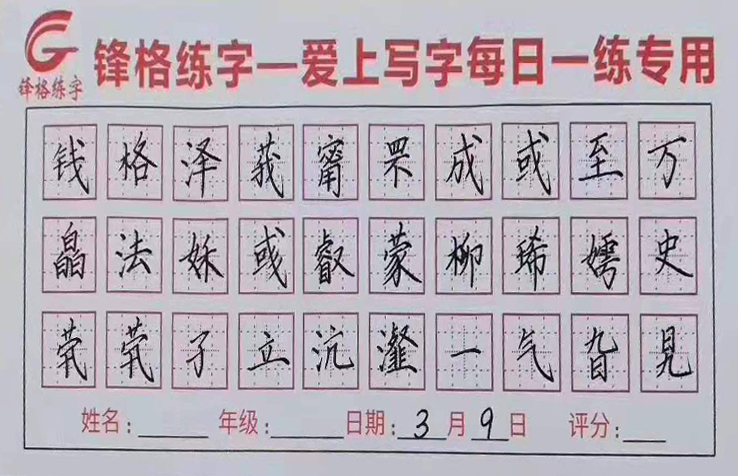 锋格练字
锋格练字—爱上写字每日一练专用
钱格泽莪甯罘成或至万
晶法姝或叡蒙柳琋嫮史
子立沆瀣一气旮旯
姓名: 年级: 日期:3月9日 评分: